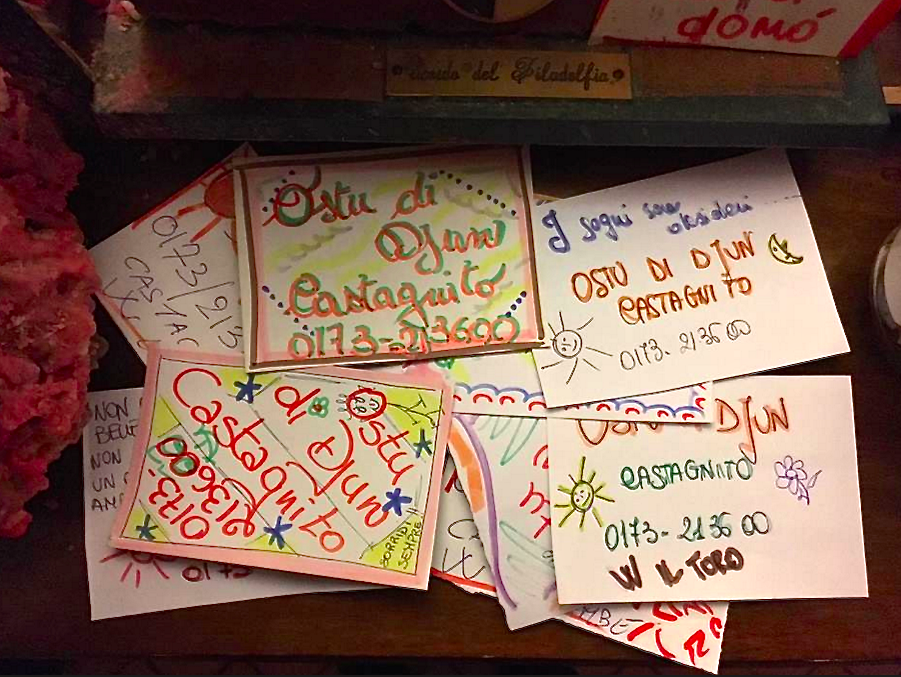 domó
del Filadelfia
0173/213
CASTAG
Ostu di
Djun
Castagnito
0173-213600
I sogni sono
desideri
OSTU DI DJUN
CASTAGNITO
0173-213600
NON
BELL
NON
UN
AM
0173
Ostu
di Djun
Castagnito
0173
213600
SORRIDI
SEMPRE!!
DJUN
CASTAGNITO
0173-213600
W IL TORO